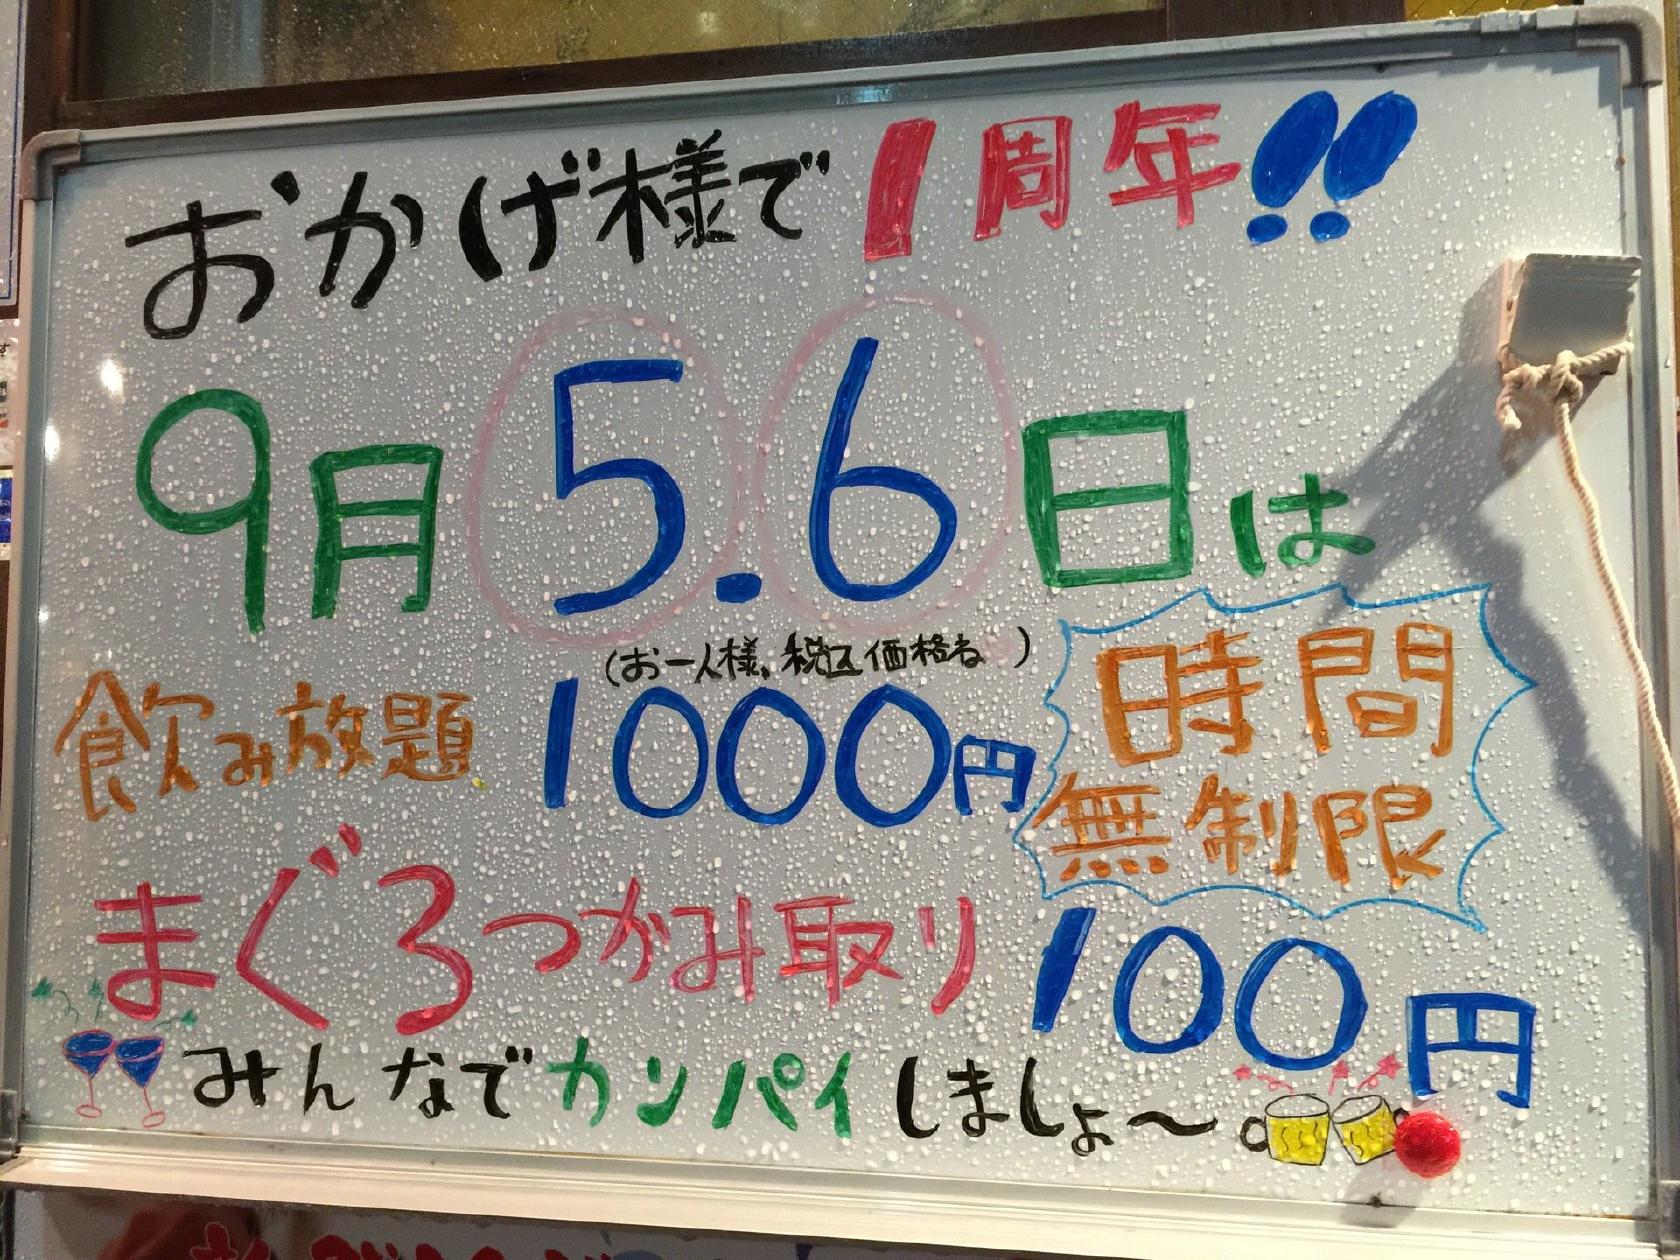 おかげ様で1周年!!
9月5.6日は
(お一人様、税込価格ね)
飲み放題 1000円
時間
無制限
まぐろつかみ取り 100円
みんなでカンパイしましょ〜